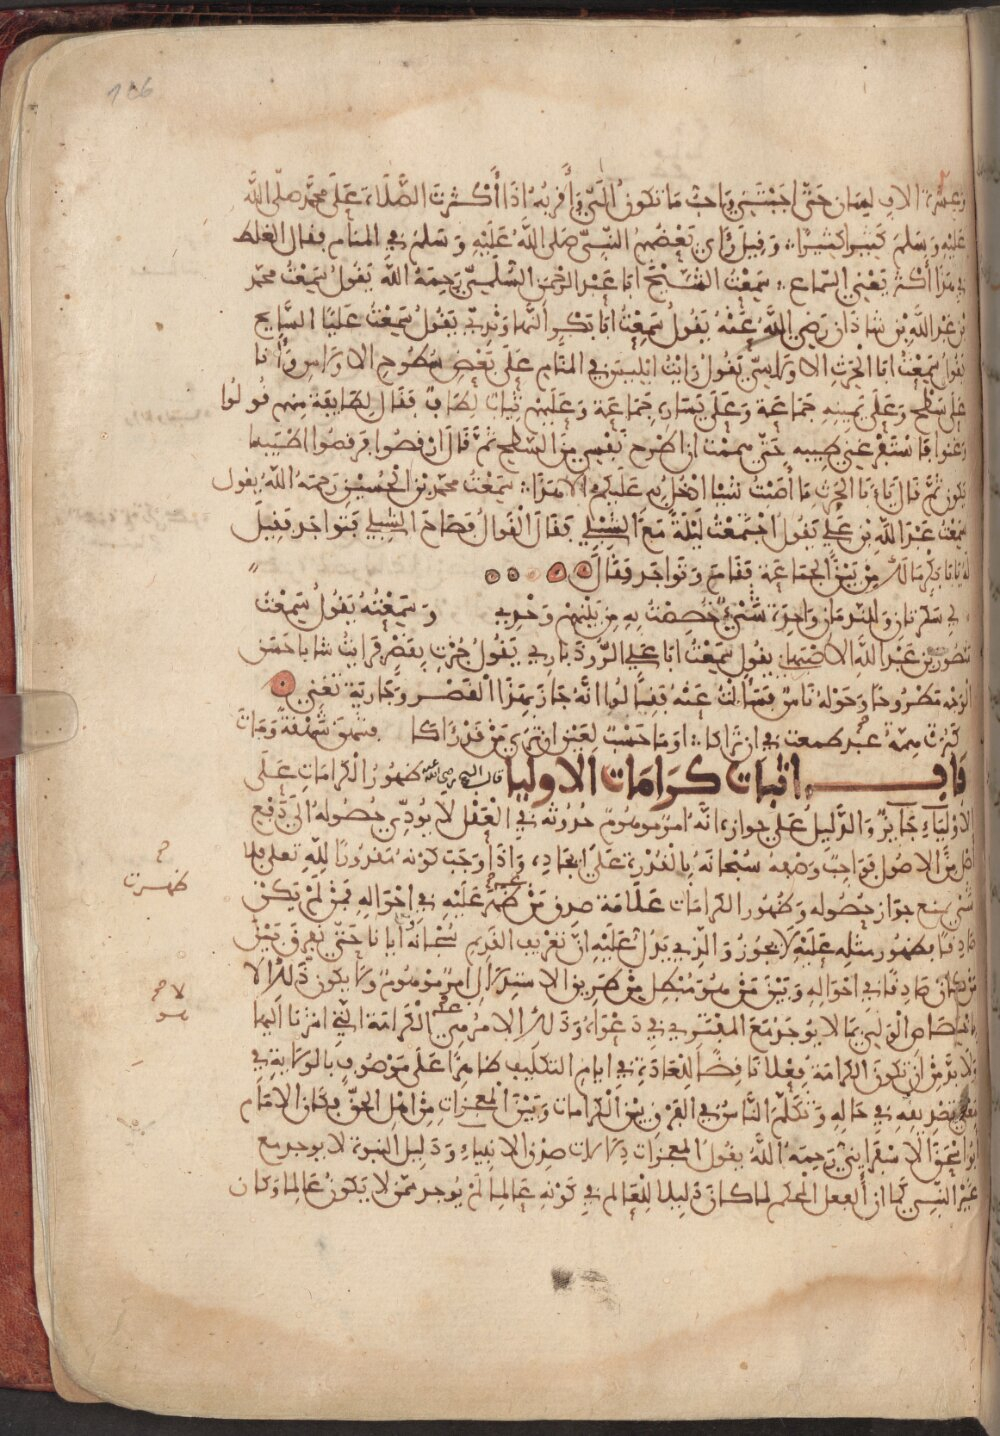 126
وَعشرة الاف لسان حَتّى اجَبْتَنِي وَاحب مَا تكون اِلَىَّ وَأقربه اذا أَكْثرتَ الصَّلَاة عَلَى محمّد صلّى اللّه
عَلَيْهِ وَسَلمَ كَثِيرا كثيرًا وَفِيلَ رَاى بَعْضُهمُ النبِيّ صَلى اللَّهُ عَلَيْهِ وَسَلمَ فِي المَنَامِ فقال الغلط
فى هَذا أَكثر يَعْنِي السّماع سَمِعْتُ الشّيْخَ ابَا عَبْد الرّحْمنِ السُّلَمِيّ رَحِمَهُ اللّه يَقُولُ سَمِعْتُ محمّد
بْن عَبْد اللَّهِ بْن شاذَان رَضِي اللَّهُ عَنْهُ يَقُولُ سَمِعْتُ ابَا بَكْرٍ النّهاوَنْدِي يَقُولُ سَمِعْتُ عَلِيًّا السَّايح
يَقُولُ سَمِعْتُ ابَا الْحَرث الاولَاسِيّ يَقُولُ رَايْتُ ابْلِيسَ فِي المَنَامِ عَلَى بَعْضِ سُطُوحِ الاولَاسِ وَأنا
عَلى سَطْحٍ وَعَلَى يَمِينِهِ جَمَاعَة وَعَلَى يَسَارِهِ جَمَاعَة وَعَلَيْهِمْ ثِيَابٌ لِطَافٌ فَقَال لِطَايِفَة مِنهم قُولُوا
وَغنوا فَاسْتَفْرَغَنِي طيبه حَتّى هممْت ان اطرح نَفْسِي مِنَ السّطح ثمَّ قَالَ ارْقصُوا فرقصُوا اطْيَبَ ما
يكون ثمَّ قَالَ لِي يَا أبَا الحَرثِ مَا أَصَبْتُ شَيْئا ادْخُلُ بِهِ عَلَيكُمْ الا هَذَا سَمِعْتُ محمّد بْن الْحُسَيْن رَحِمَهُ اللَّهُ يقول
سَمِعْتُ عَبْدَ اللَّهِ بْن عَلِي يَقُولُ اجْتَمَعْتُ لَيْلَةً مَعَ الشِّبْلِي فَقَالَ الْقَوالُ فَصَاحَ الشِّبلي فَتواجَد فَقِيلَ
لَه يَا ابَا بَكْرٍ مَا لَكَ مِنْ بَيْنِ الجَمَاعَة فَقَامَ وَتَوَاجَد فَقَالَ
لِي سَكْرَتَانِ وَللنّدمَانِ وَاحِدَة شَيْءٌ خُصِصْتُ بِهِ مِنْ بَيْنِهمْ وَحْدِي وَسَمِعْتُهُ يَقُولُ سَمِعْتُ
مَنْصُور بْن عَبْد اللَّهِ الاصْبَهانِي يقُول سَمِعْتُ ابَا عَلي الرُّوذبَارِي يَقُولُ جُزْتُ بِقَصْرٍ فَرَايْتُ شَابا حَسَن
الْوَجْه مَطْرُوحًا وَحَوْلَهُ نَاسٌ فَسَالْتُ عَنْهُ فَقِيلَ لُوا انَّهُ جَازَ بِهَذَا الْقَصْرِ وَجَارِيَة تَغَنِي
كبرت هِمّة عبْد طمعت فِي ان ترَاكا اوَمَا حَسْبُ لِعَيْن ان تَرَى مَنْ قدْ رَاكا فشهق شَهْقةً وَمَاتَ
بَاب اثبات كرَامات الاوليا قال الشيخ رضي الله عنه ظهُورُ الْكرَاماتِ عَلَى
الاوْلِيَاءِ جَايِزٌ وَالدَّلِيلُ عَلَى جوازه انَّهُ امْرٌ موهُومٌ حُدُوثه فِي الْعَقْل لَا يُودِّي حُصُولهُ الَى دَفْعِ
اصْل مِنَ الاصُول فَوَاجِبٌ وَصْفه سُبْحَانَهُ بِالقُدْرَة عَلَى ايجَادِهِ وَاذَا وَجَبَ كَوْنهُ مَقْدُورًا لِلَّهِ تعلى فلا
شَيْ يمنع جوَاز حُصُولِه وَظُهُور الكرامَات عَلَامَة صدق مَنْ ظَهَرَ عَلَيْهِ فِي احْوَالِهِ فمَنْ لَمْ يَكنْ
صَادِقًا بظهُور مثلِه عَلَيْهِ لَا يجُوزُ وَالّذِي يَدُلُّ عَلَيْهِ انّ تَعْرِيف القَدِيمِ سُبْحَانَهُ ايانا حَتّى نعرِقَ بَيْنَ
مَنْ كانَ صَادِقًا فِي احْوَالِهِ وَبَيْنَ مَنْ هُو مُبْطِل مِنْ طَرِيقِ الاسْتِدلَالِ امْرٌ مَوْهُومٌ وَلَا يكون ذَلكَ الا
بِاخْتِصَاص الْوَلِيّ بِمَا لا يُوجَدُ مَعَ المفْتَرِي فِي دَعْوَاهُ وَذَلكَ الامْرُ هِيَ الْكرَامَة الَّتِي اشرْنا اليهَا
وَلابُدَّ مِنْ أنْ تكونَ الكرَامَة فِعْلًا نَاقِضًا لِلْعَادَة فِي ايَامِ التكليفِ ظاهِرًا عَلَى مَوْصُوفٍ بالوَلايةِ فِي
مَعْنَى تَصْدِيقِهِ فِي حَالِهِ وَتَكَلَّمَ النَّاسُ فِي الفَرْقِ بَيْن الْكرَامات وَبَيْنَ الْمعْجزَاتِ مِنْ اهْلِ الحَقّ فكانَ الامَام
ابُو اسْحَقَ الاسْفَرَايِنِيّ رَحِمَهُ اللَّهُ يَقُولُ المعجزَات دِلَالات صِدْقِ الانبِيَاءِ وَدَلِيل النبوة لا يوجد مع
غَيْرِ النّبِيّ كَما ان الفعل المحكم لما كانَ دَلِيلا لِلْعَالم فِي كَوْنِهِ عَالِما لَمْ يُوجد ممّن لَا يَكونُ عَالِما وَكان
ظهرت